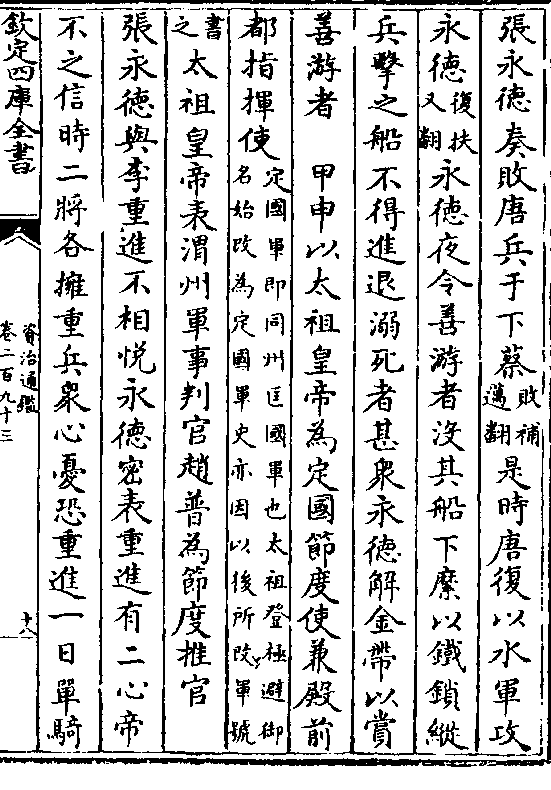 張永德奏敗唐兵于下蔡敗補邁翻是時唐復以水軍攻
永德復扶又翻永德夜令善游者沒其船下縻以鐵鎖縱
兵擊之船不得進退溺死者甚衆永德解金帶以賞
善游者 甲申以太祖皇帝為定國節度使兼殿前
都指揮使定國軍即同州匡國軍也太祖登極避御名始改為定國軍史亦因以後所改軍號
書之太祖皇帝表渭州軍事判官趙普為節度推官
張永德與李重進不相悅永德密表重進有二心帝
不之信時二將各擁重兵衆心憂恐重進一日單騎
欽定四庫全書
資治通鑑
卷二百九十三
十八